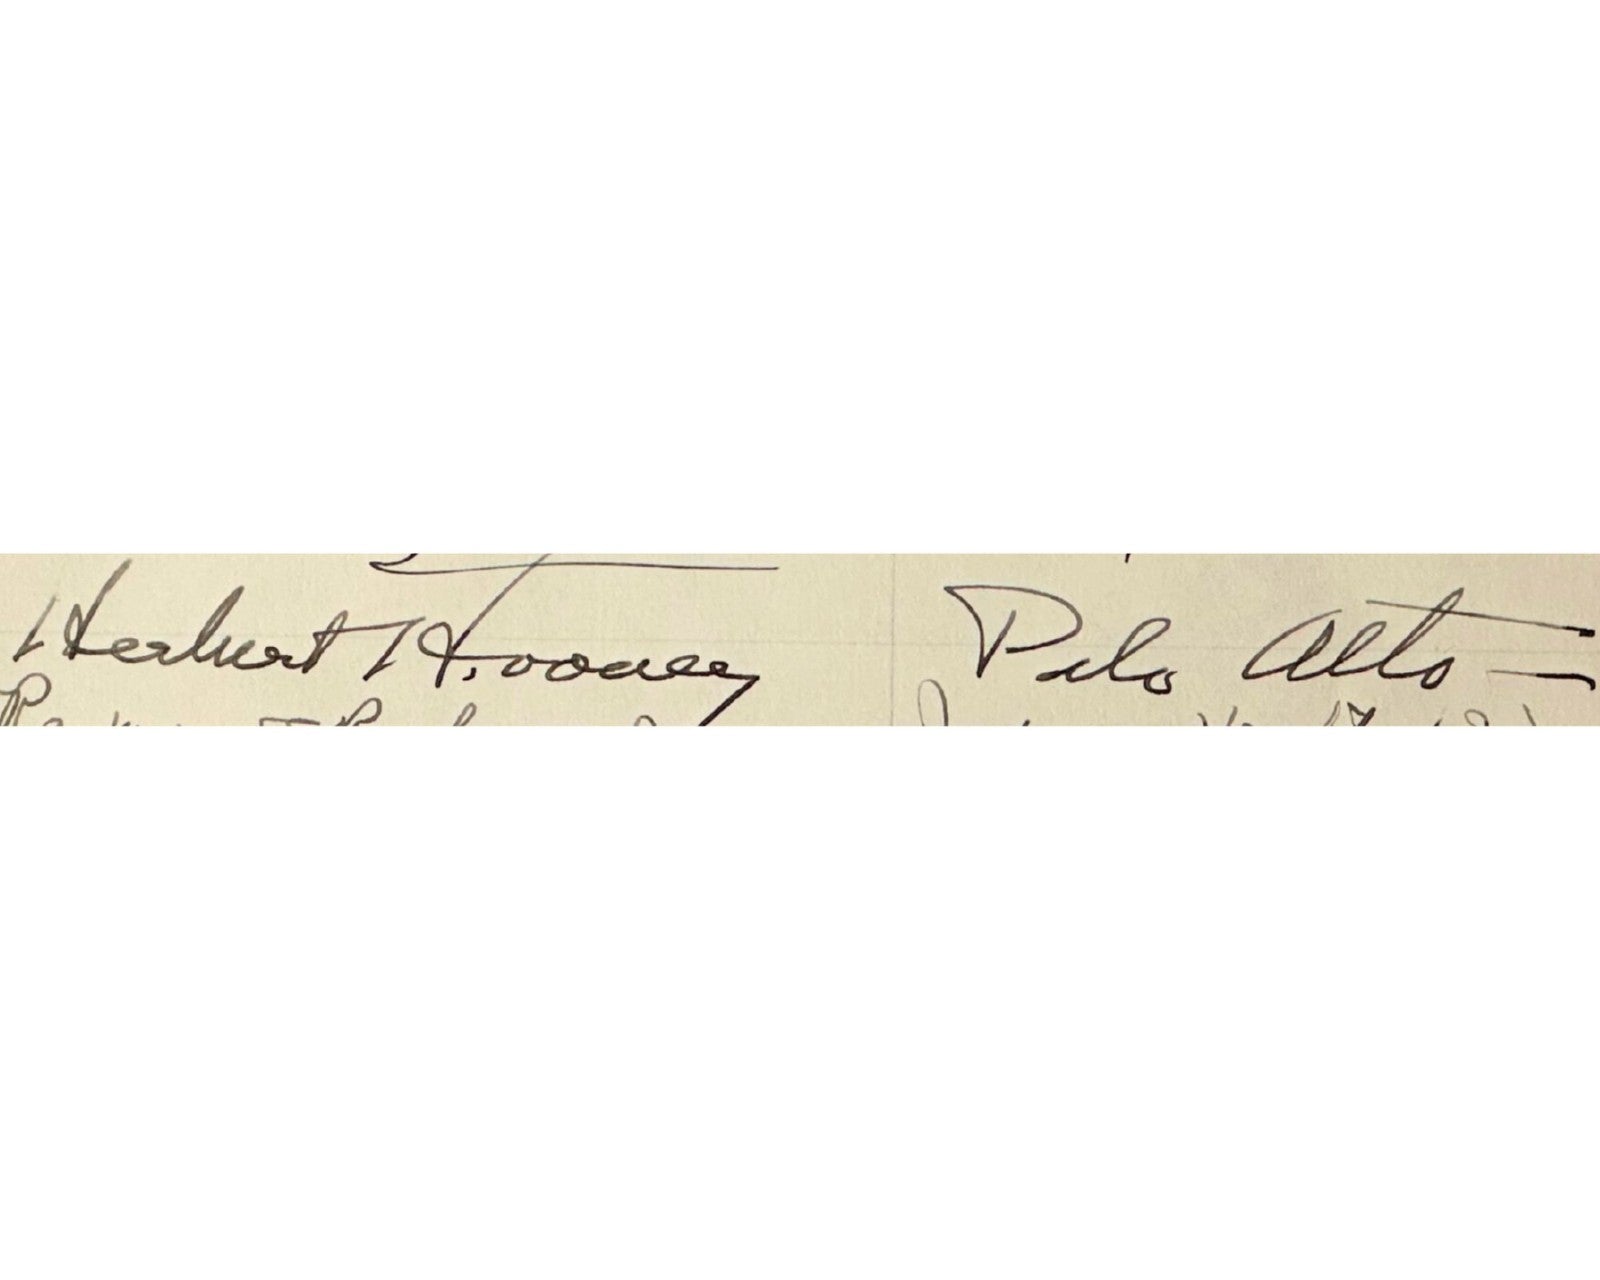 Herbert Hoover Palo Alto —